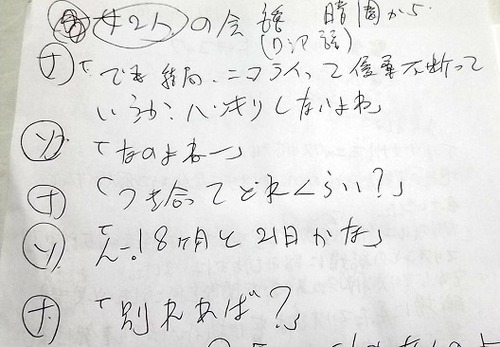 女2人の会話 暗闇から
(ロシア語)
ナ「でも結局、ニコライって優柔不断って
いうか、ハッキリしないよね」
ソ「なのよねー」
ナ「つき合ってどれくらい?」
ソ「んー、18ヶ月と21日かな」
ナ「別れれば?」